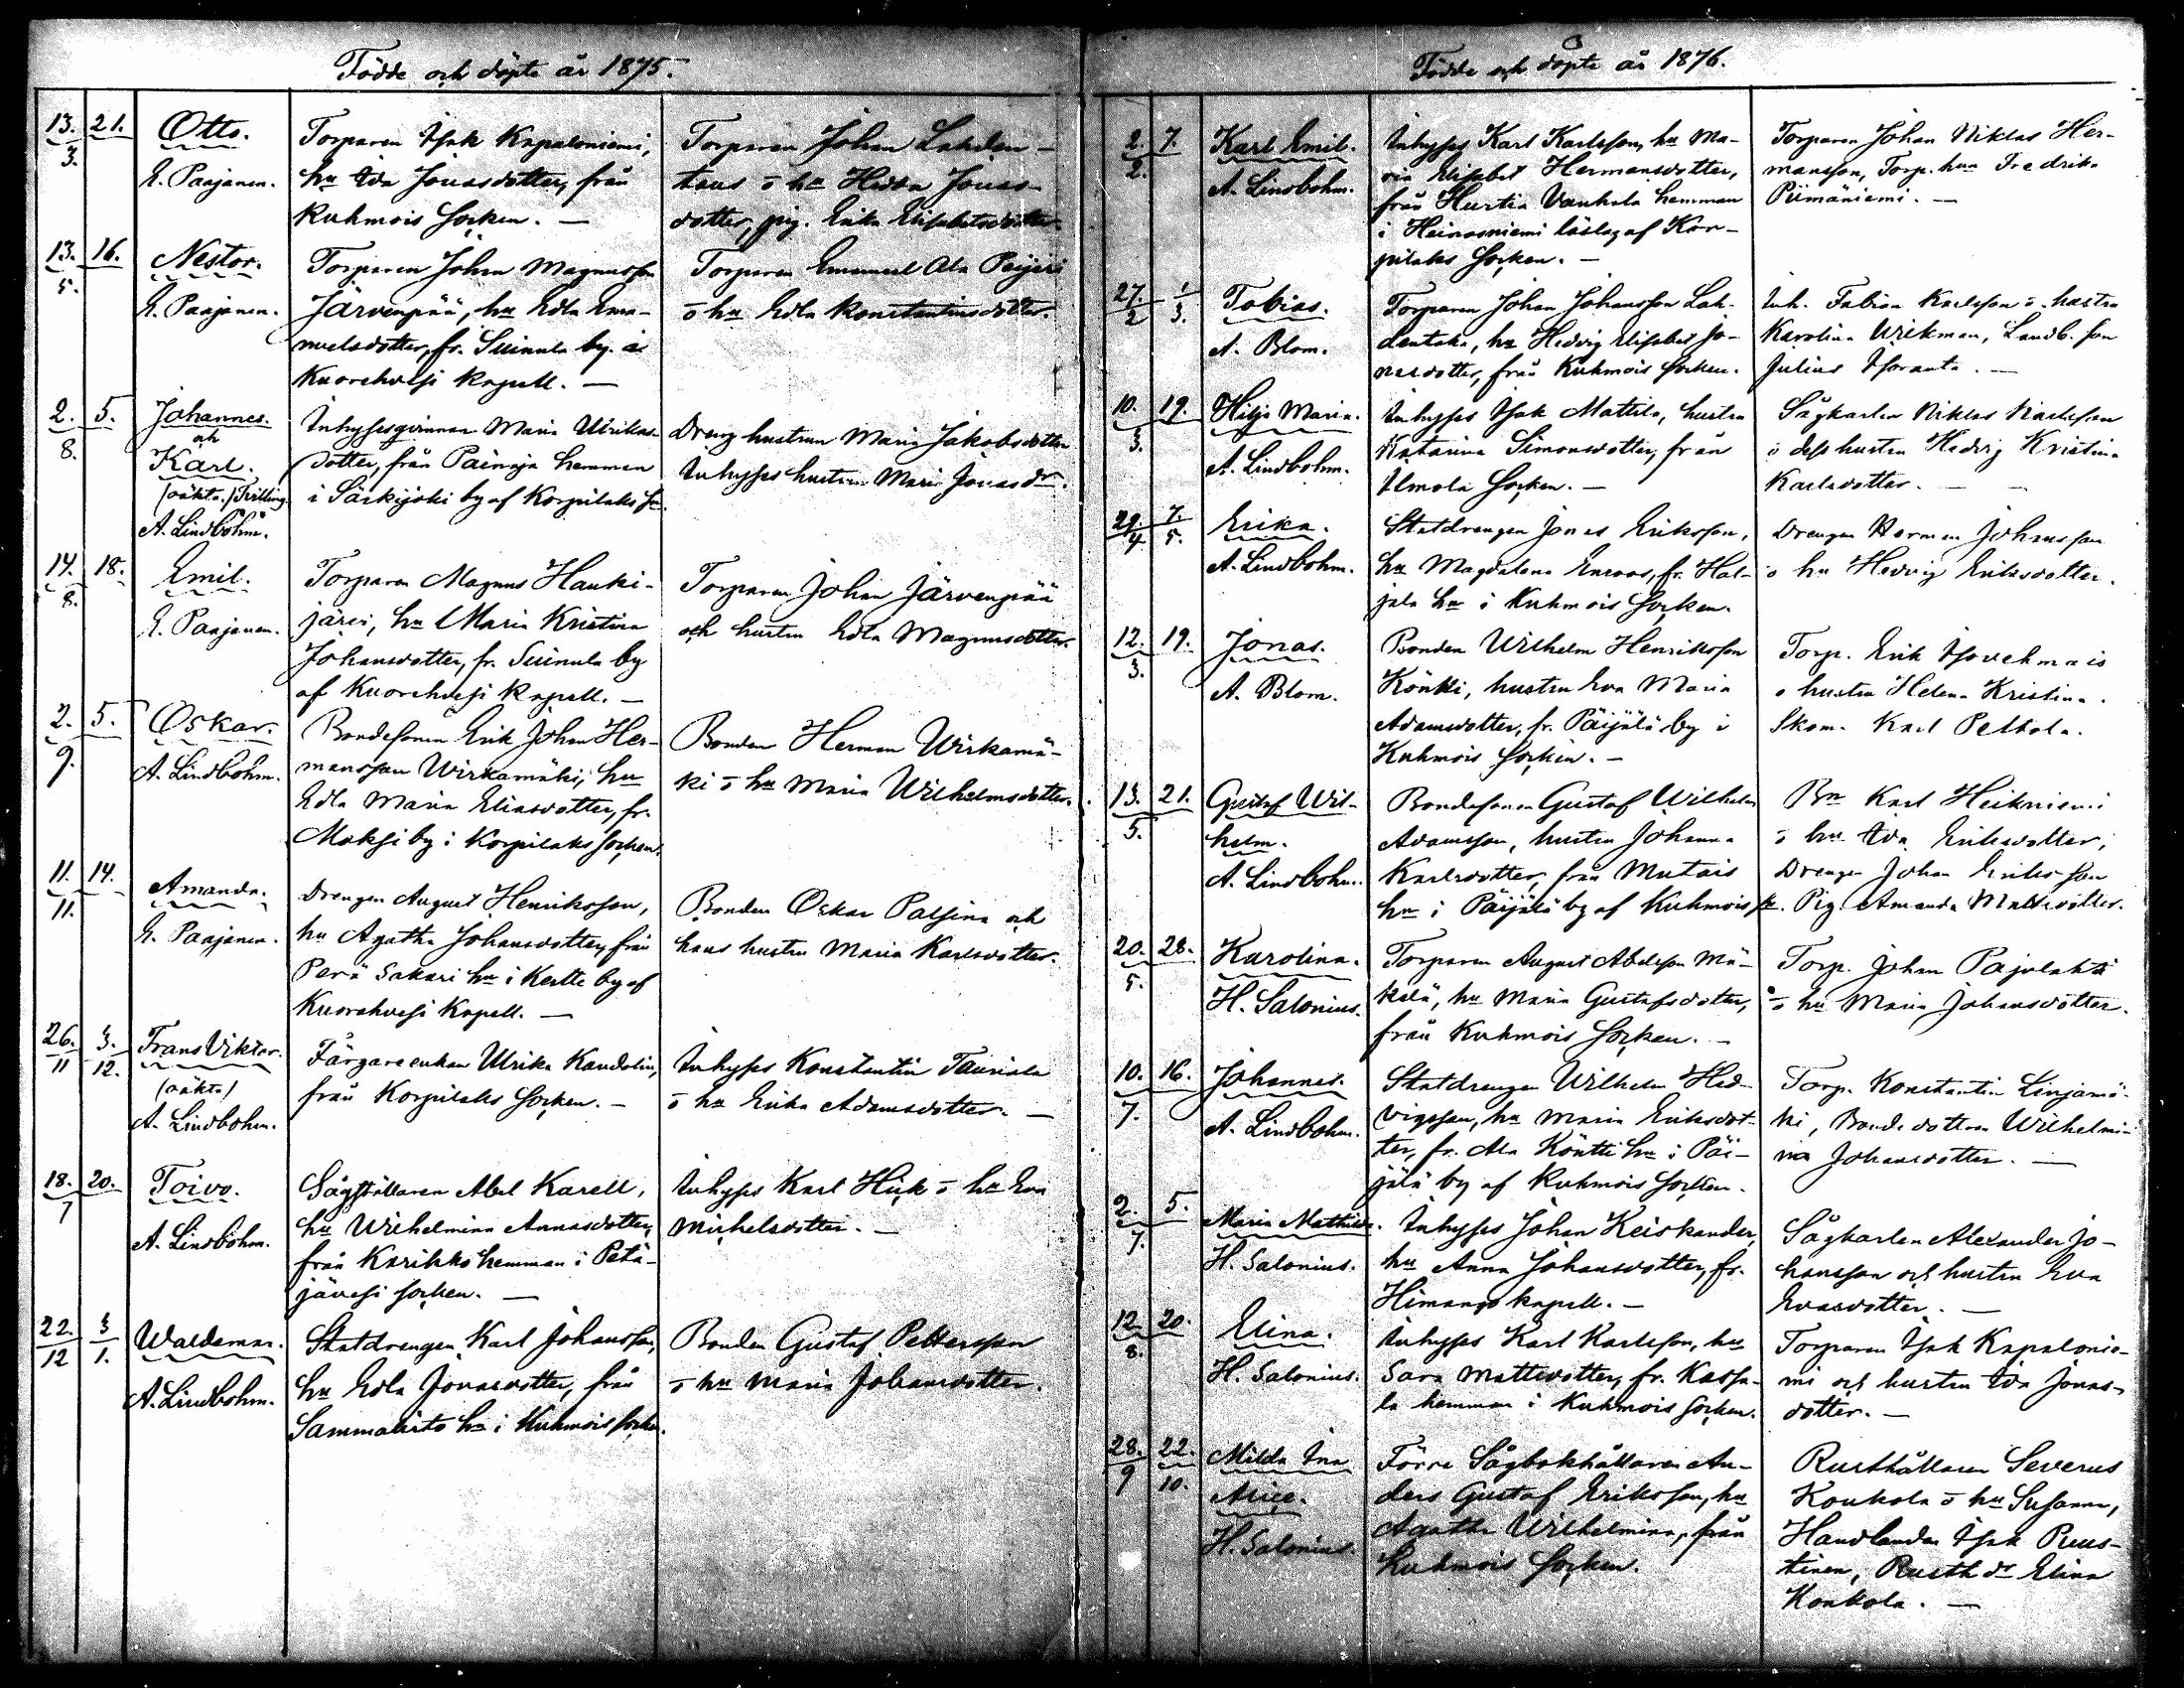 Födde och döpte år 1875.
13. 21. Otto. Torparen Isak Kapaloniemi, Torparen Johan Lahden-
3. E. Paajanen. hu Ida Jonasdotter, från taus o hu Hedda Jonas-
Kuhmois socken. — dotter, pig. Erika Elisabetsdotter.
13. 16. Nestor. Torparen Johan Magnusson Torparen Emanuel Ala Peijari
5. E. Paajanen. Järvenpää, hu Edla Ema- o hu Edla Konstantinsdotter.
nuelsdotter, fr. Suinula by. af
Kuorehvesi kapell. —
2. 5. Johannes. Inhysesqvinnan Maria Ulrikas- Dreng hustrun Maria Jakobsdotter
8. och
Karl. dotter, från Painaja hemman Inhyses hustrun Maria Jonasdr.
(oäkta) Tvilling i Särkijoki by af Korpilaks
A. Lindbohm.
14. 18. Emil. Torparen Magnus Hauki- Torparen Johan Järvenpää
8. E. Paajanen. järvi, hu Maria Kristina och hustru Edla Magnusdotter.
Johansdotter, fr. Suinula by
af Kuorehvesi kapell. —
2. 5. Oskar. Bondesonen Erik Johan Her- Bonden Herman Wirkamä-
9. A. Lindbohm. mansson Wirkamäki, hu ki o hu Maria Wilhelmsdotter.
Edla Maria Eliasdotter, fr.
Moksi by i Korpilaks socken.
11. 14. Amanda. Drengen August Henriksson, Bonden Oskar Passina och
11. E. Paajanen. hu Agatha Johansdotter, från hans hustru Maria Karlsdotter.
Perä Sakari hn i Kertte by af
Kuorehvesi Kapell. —
26. 3. Frans Viktor. Färgareenkan Ulrika Kandolin, Inhyses Konstantin Tauriala
11 12. (oäkta) från Korpilaks socken. — o hu Erika Adamsdotter. —
A. Lindbohm.
18. 20. Toivo. Sågställaren Abel Karell, Inhyses Karl Huk o hu Eva
7 A. Lindbohm. hu Wilhelmina Annasdotter, Michelsdotter. —
från Karikko hemman i Petä-
jävesi socken. —
22. 3 Waldemar. Statdrengen Karl Johansson, Bonden Gustaf Pettersson
12 1. A. Lindbohm. hu Edla Jonasdotter, från o hu Maria Johansdotter.
Sammalisto hn i Kuhmois socken.
Födde och döpte år 1876.
2. 7. Karl Emil. Inhyses Karl Karlsson, hu Ma- Torparen Johan Niklas Her-
2. A. Lindbohm. ria Elisabet Hermansdotter, mansson, Torp. hun Fredrika
från Hurtia Vanhala hemman Piimäniemi. —
i Heinosniemi läslag af Kor-
pilaks socken. —
27. 1 Tobias. Torparen Johan Johansson Lah- Inh. Fabian Karlsson o. hustru
2 3. A. Blom. dentaka, hu Hedvig Elisabet Jo- Karolina Wikman, Landb. son
nasdotter, från Kuhmois socken. Julius Isoranta. —
10. 19. Hilja Maria. Inhyses Isak Mattila, hustru Sågkarlen Niklas Karlsson
3. A. Lindbohm. Katarina Simonsdotter, från o dess hustru Hedvig Kristina
Ilmola socken. — Karlsdotter. —
29. 7. Erika. Statdrengen Jonas Eriksson, Drengen Herman Johansson
4 5. A. Lindbohm. hu Magdalena Enroos, fr. Hal- o hu Hedvig Eriksdotter.
jala hn i Kuhmois socken.
12. 19. Jonas. Bonden Wilhelm Henriksson Torp. Erik Isovehmais
3. A. Blom. Könki, hustru Eva Maria o hustru Helena Kristina.
Adamsdotter, fr. Päijälä by i Skom. Karl Peltola.
Kuhmois socken. —
13. 21. Gustaf Wil- Bondesonen Gustaf Wilhelm Bn Karl Heikniemi
5. helm. Adamsson, hustru Johanna o hu Ida Eriksdotter,
A. Lindbohm. Karlsdotter, från Mutais Drengen Johan Eriksson
hn i Päijälä by af Kuhmois sn. Pig. Amanda Mattsdotter.
20. 28. Karolina. Torparen August Abelsson Mä- Torp. Johan Pajulahti
5. H. Salonius. kelä, hu Maria Gustafsdotter, o hu Maria Johansdotter.
från Kuhmois socken. —
10. 16. Johannes. Statdrengen Wilhelm Hed- Torp. Konstantin Linjamä-
7. A. Lindbohm. vigsson, hu Maria Eriksdot- ki, Bondedottren Wilhelmi-
ter, fr. Ala Köntti hn i Päi- na Johansdotter. —
jälä by af Kuhmois socken.
2. 5. Maria Mathilda. Inhyses Johan Keiskander, Sågkarlen Alexander Jo-
7. H. Salonius. hu Anna Johansdotter, fr. hansson och hustru Eva
Himango kapell. — Evasdotter. —
12 20. Elina. Inhyses Karl Karlsson, hu Torparen Isak Kapalonie-
8. H. Salonius. Sara Mattsdotter, fr. Kassa- mi och hustru Ida Jonas-
la hemman i Kuhmois socken. dotter. —
28. 22. Milda Ina Förre Sågbokhållaren An- Rusthållaren Severus
9 10. Alice. ders Gustaf Eriksson, hu Konkola o hu Susanna,
H. Salonius. Agatha Wilhelmina, från Handlanden Isak Ruus-
Kuhmois socken. kinen, Rusth dr Elina
Konkola. —